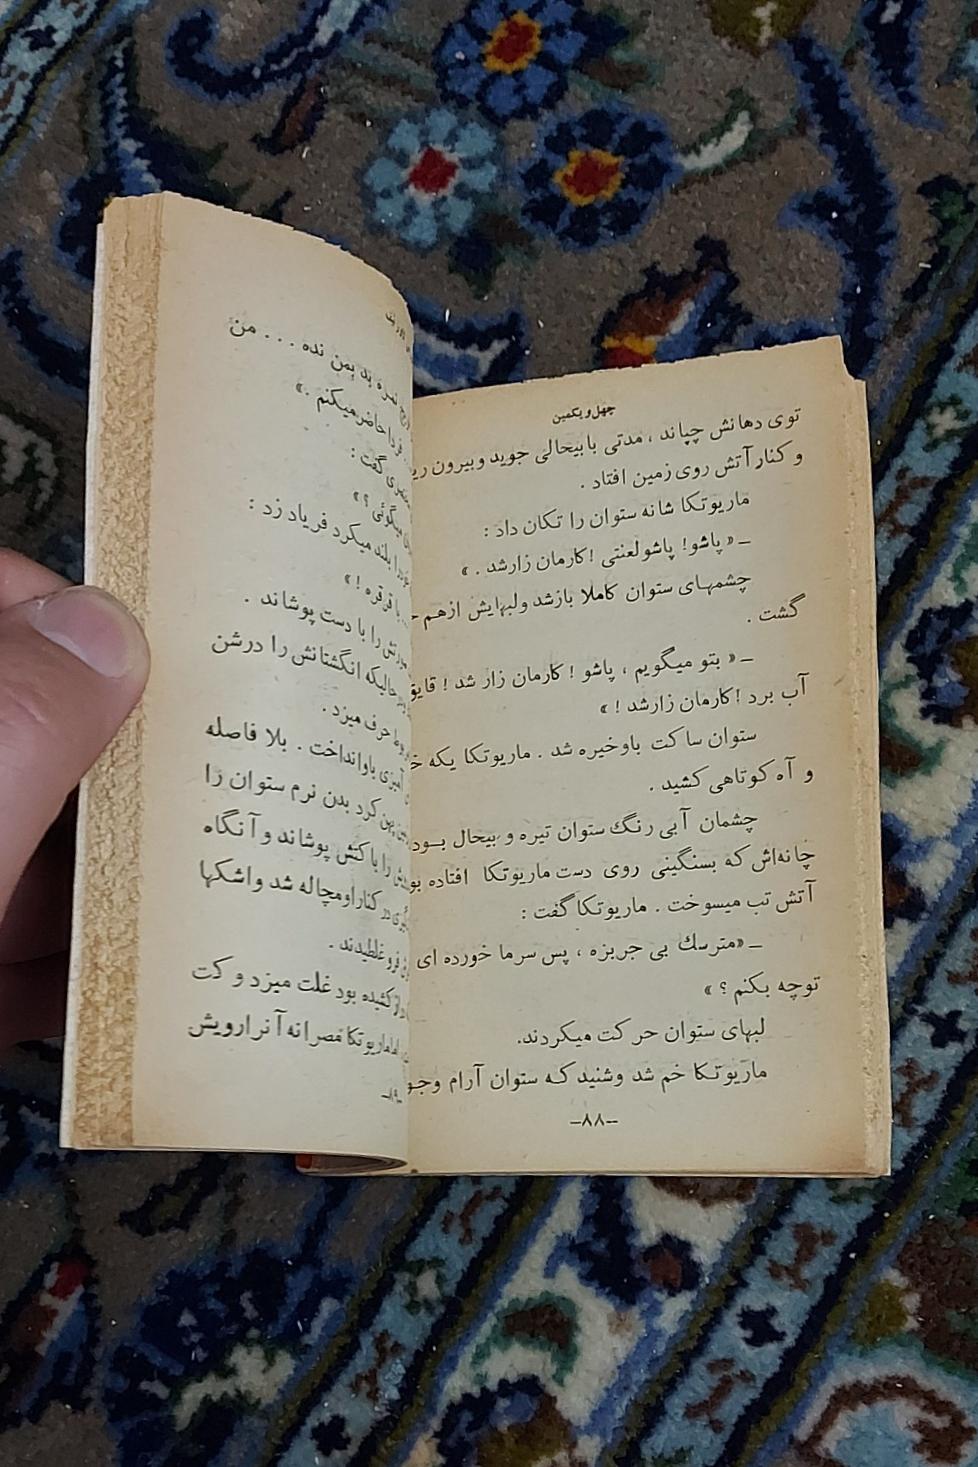 چهل و یکمین
توی دهانش چپاند ، مدتی با بیحالی جوید و بیرون
و کنار آتش روی زمین افتاد .
ماریوتکا شانه ستوان را تکان داد :
ــ « پاشو! پاشو لعنتی ! کارمان زار شد . »
چشمهای ستوان کاملا باز شد ولبهایش از هم
گشت .
ــ « بتو میگویم ، پاشو ! کارمان زار شد !
آب برد ! کارمان زار شد ! »
ستوان ساکت باو خیره شد . ماریوتکا یکه
و آه کوتاهی کشید .
چشمان آبی رنگ ستوان تیره و بیحال بود
چانه‌اش که بسنگینی روی دست ماریوتکا افتاده
آتش تب میسوخت . ماریوتکا گفت :
ــ «مترسك بی جربزه ، پس سرما خورده ای
توچه بکنم ؟ »
لبهای ستوان حرکت میکردند.
ماریوتکا خم شد وشنید که ستوان آرام
–۸۸–
نمره بد بمن نده . . . من
فردا حاضر میکنم . »
گفت :
میگوئی ؟ »
بلند میکرد فریاد زد :
با قرقره ! »
را با دست پوشاند .
حالیکه انگشتانش را درشن
حرف میزد .
آمیزی باو انداخت . بلا فاصله
پهن کرد بدن نرم ستوان را
را با کتش پوشاند و آنگاه
در کنار او مچاله شد واشکها
فرو غلطیدند .
کشیده بود غلت میزد و کت
ماریوتکا مصرانه آنرا رویش
–۸۹–